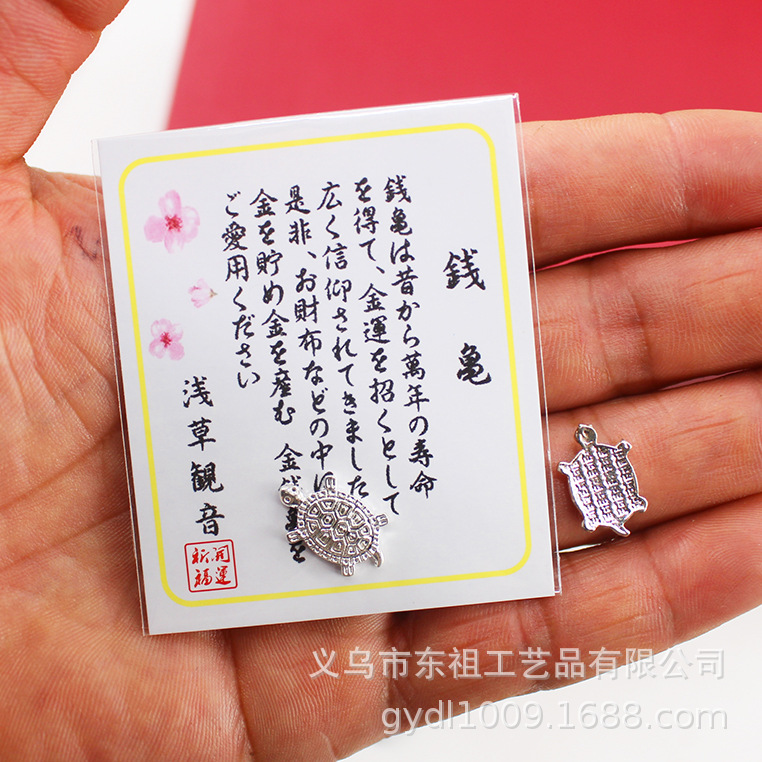 銭亀
銭亀は昔から萬年の寿命
を得て、金運を招くとして
広く信仰されてきました
是非、お財布などの中に
金を貯め金を産む 金銭亀を
ご愛用ください
浅草観音
開運
祈福
义乌市东祖工艺品有限公司
gydl1009.1688.com